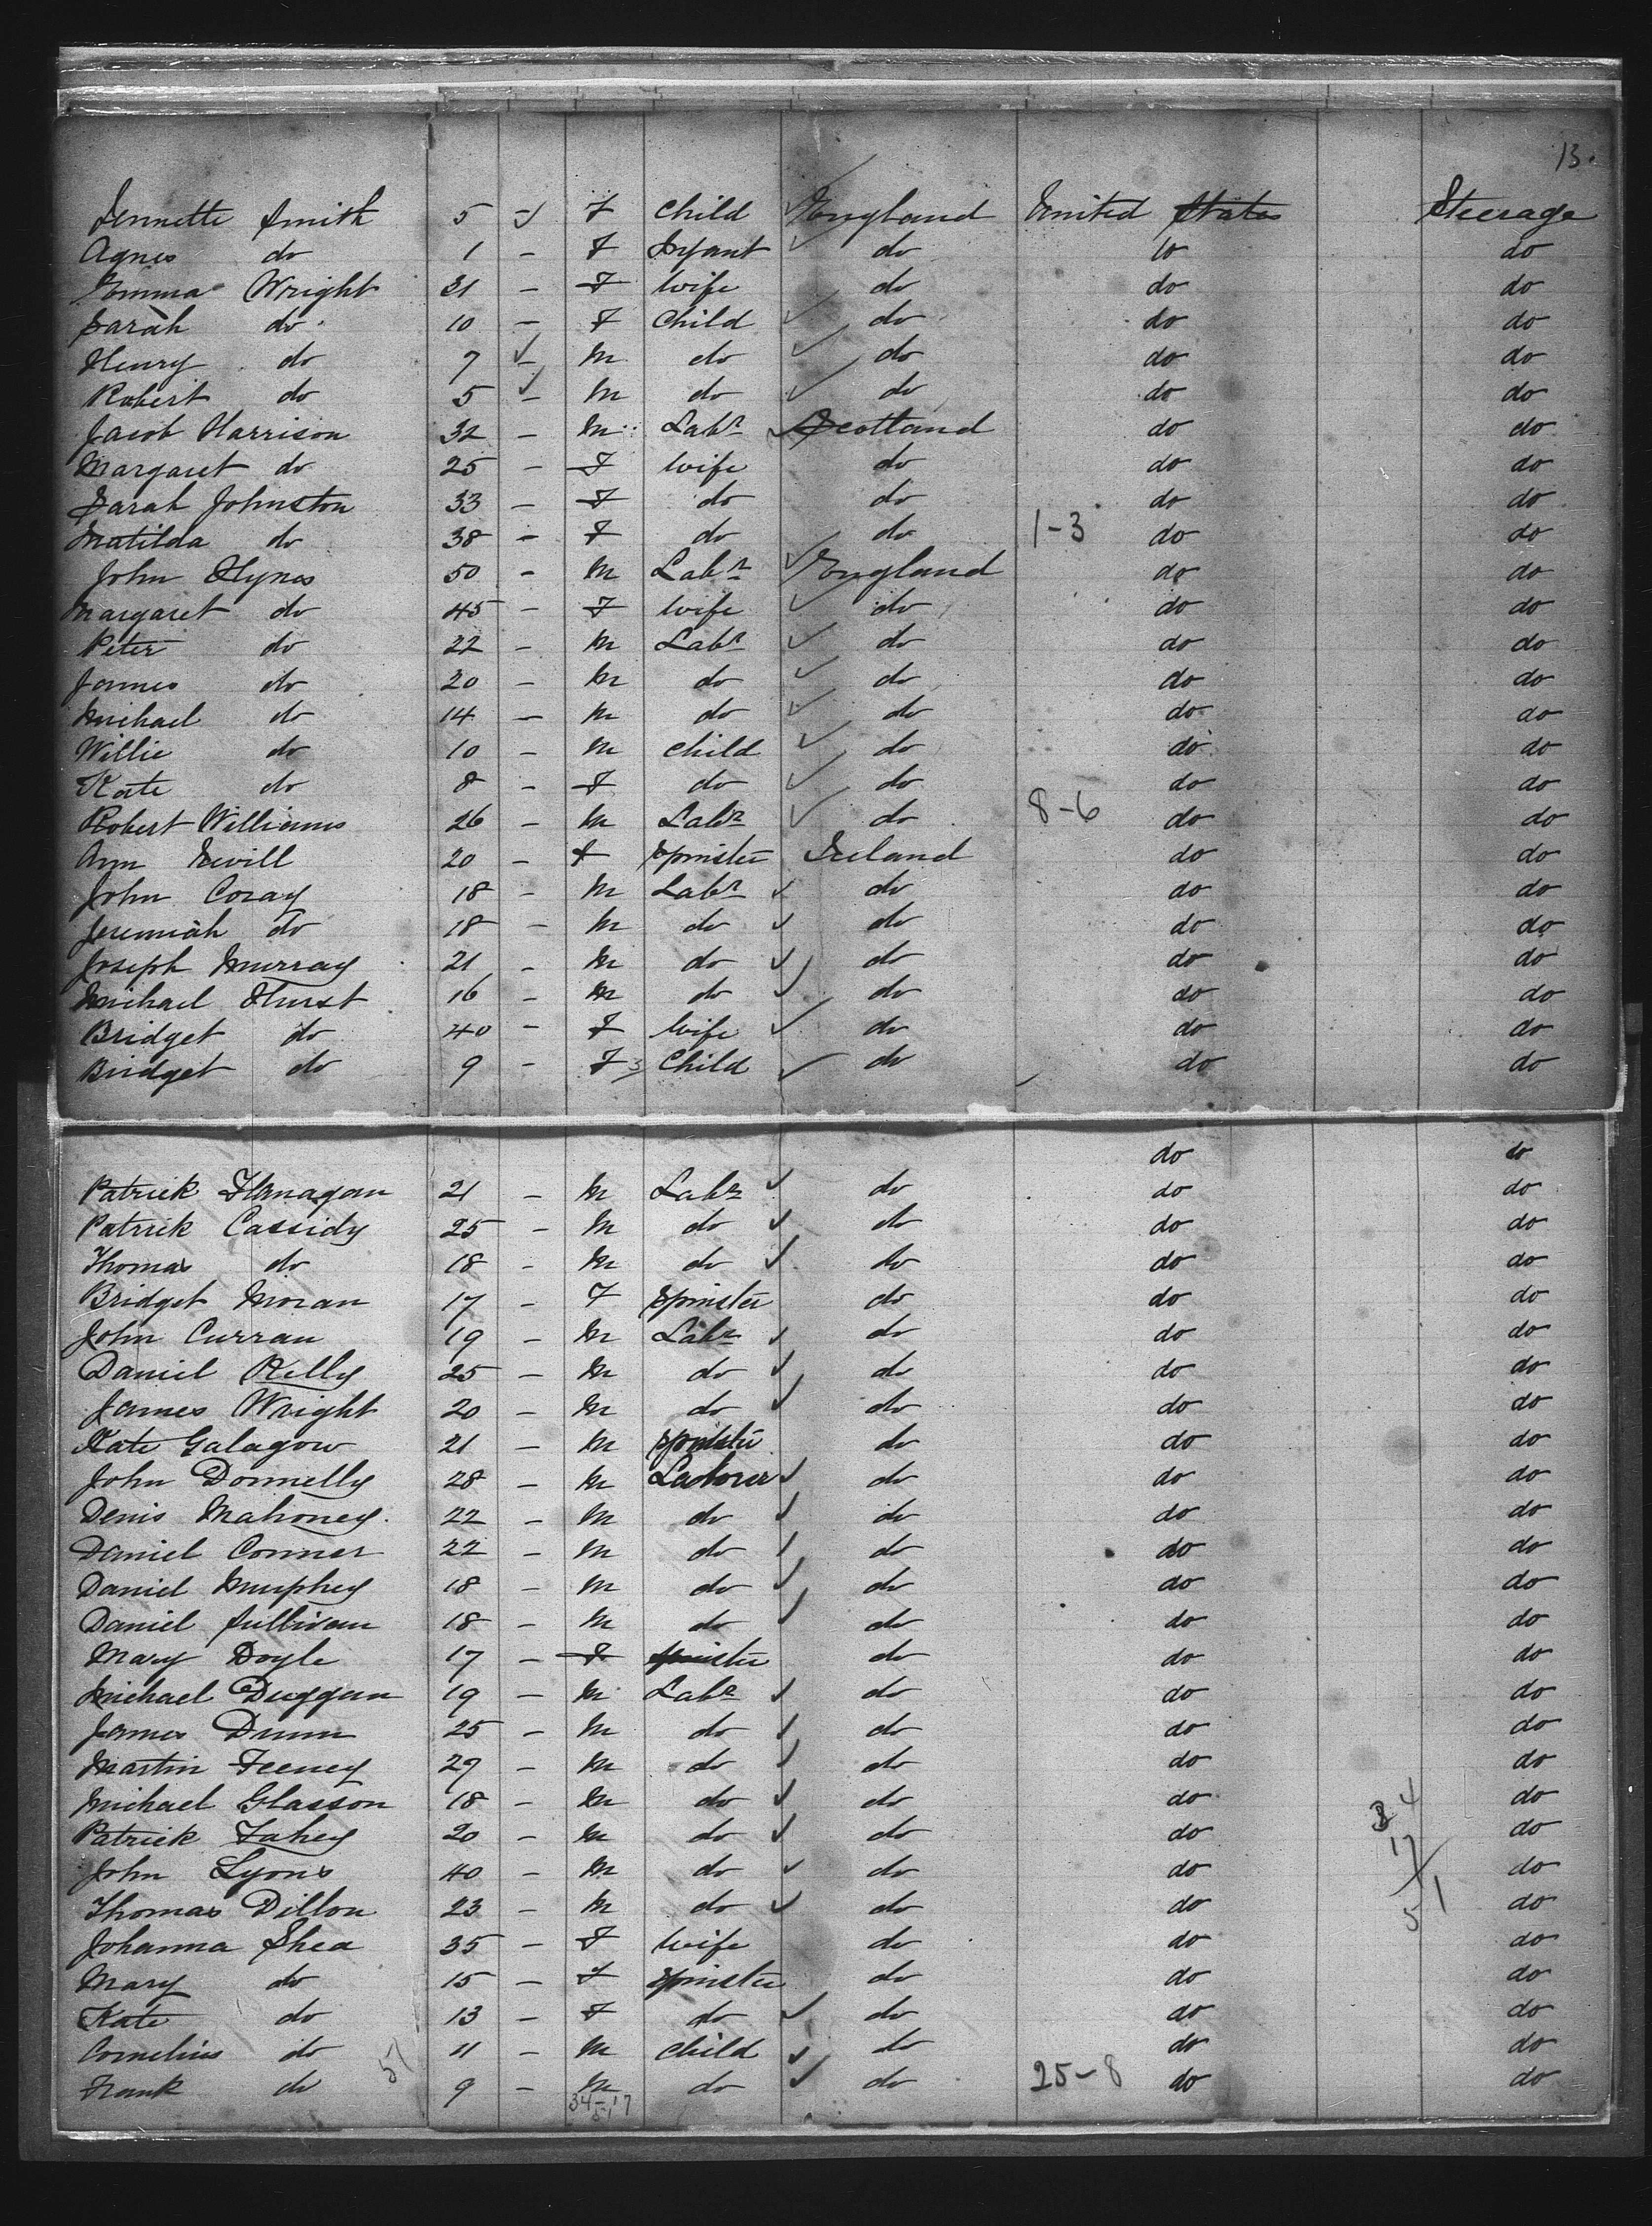 13.
Jennette Smith 5 - F Child England United States Steerage
Agnes do 1 - F Infant do do do
Emma Wright 31 - F Wife do do do
Sarah do 10 - F Child do do do
Henry do 7 - M do do do do
Robert do 5 - M do do do do
Jacob Harrison 32 - M Labr Scotland do do
Margaret do 25 - F Wife do do do
Sarah Johnston 33 - F do do do do
Matilda do 38 - F do do 1-3 do do
John Hynes 50 - M Labr England do do
Margaret do 45 - F Wife do do do
Peter do 22 - M Labr do do do
James do 20 - M do do do do
Michael do 14 - M do do do do
Willie do 10 - M Child do do do
Kate do 8 - F do do do do
Robert Williams 26 - M Labr do 8-6 do do
Ann Nevill 20 - F Spinster Ireland do do
John Coray 18 - M Labr do do do
Jeremiah do 18 - M do do do do
Joseph Murray 21 - M do do do do
Michael Hurst 16 - M do do do do
Bridget do 40 - F Wife do do do
Bridget do 9 - F 3 Child do do do
do do
Patrick Flanagan 21 - M Labr do do do
Patrick Cassidy 25 - M do do do do
Thomas do 18 - M do do do do
Bridget Moran 17 - F Spinster do do do
John Curran 19 - M Labr do do do
Daniel Kelly 25 - M do do do do
James Wright 20 - M do do do do
Kate Galagow 21 - M Spinster do do do
John Donnelly 28 - M Laborer do do do
Denis Mahoney 22 - M do do do do
Daniel Conner 22 - M do do do do
Daniel Murphey 18 - M do do do do
Daniel Sullivan 18 - M do do do do
Mary Doyle 17 - F Spinster do do do
Michael Duggan 19 - M Labr do do do
James Dunn 25 - M do do do do
Martin Feeney 29 - M do do do do
Michael Glasson 18 - M do do do do
Patrick Fahey 20 - M do do do 34 do
John Lyons 40 - M do do do 17 do
Thomas Dillon 23 - M do do do 51 do
Johanna Shea 35 - F Wife do do do
Mary do 15 - F Spinster do do do
Kate do 13 - F do do do do
Cornelius do 11 - M Child do do do
Frank do 51 9 - M do do 25-8 do do
34-17
51